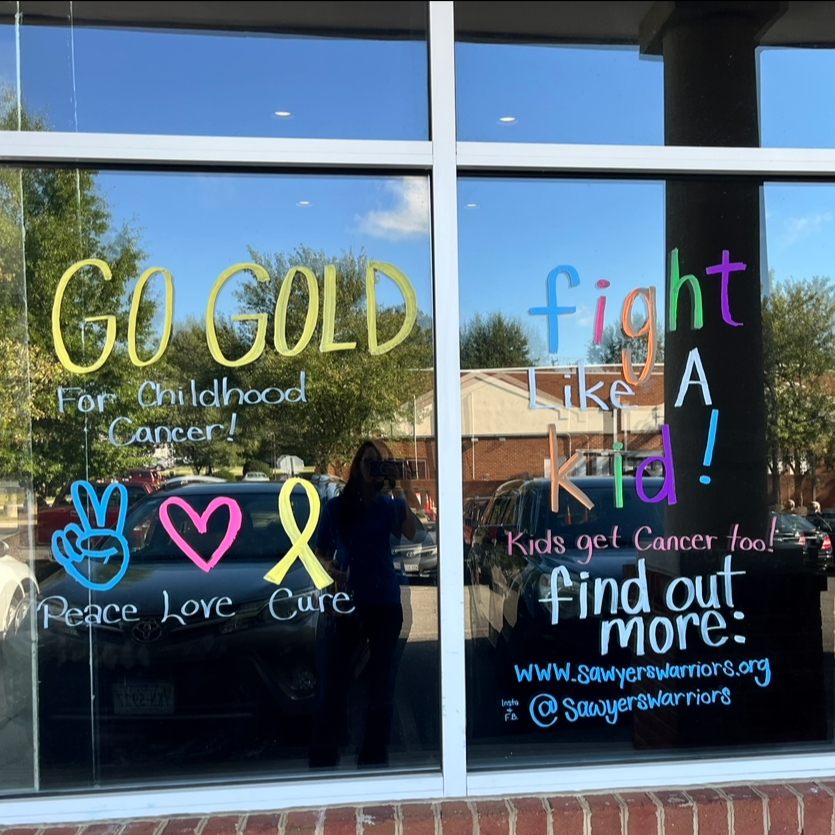 GO GOLD
For Childhood
Cancer!
Peace Love Cure
fight
Like A
kid!
Kids get Cancer too!
find out
more:
www.sawyerswarriors.org
Insta
+
F.B.
@sawyerswarriors